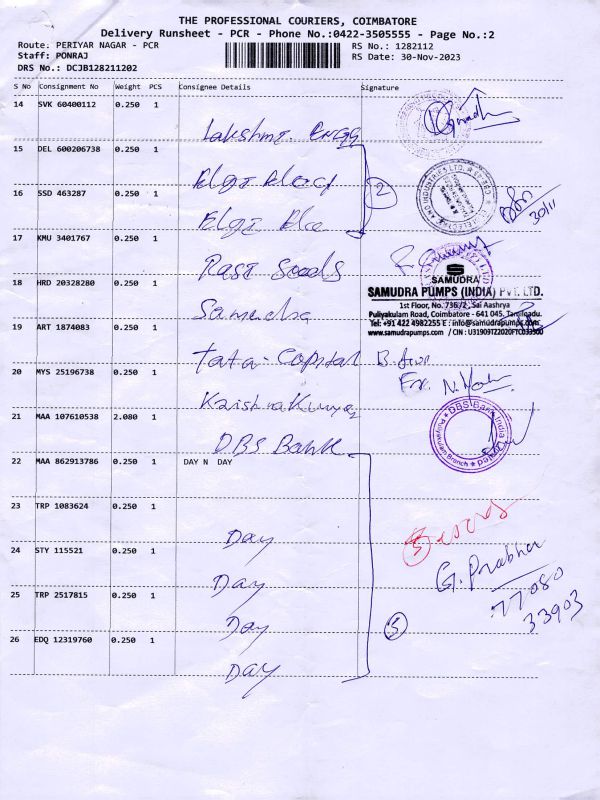 THE PROFESSIONAL COURIERS, COIMBATORE
Delivery Runsheet - PCR - Phone No.:0422-3505555 - Page No.:2
Route: PERIYAR NAGAR - PCR RS No.: 1282112
Staff: PONRAJ RS Date: 30-Nov-2023
DRS No.: DCJB128211202
S No Consignment No Weight PCS Consignee Details Signature
14 SVK 60400112 0.250 1
Lakshmi. Engg
15 DEL 600206738 0.250 1
Elgi Elect
16 SSD 463287 0.250 1
Elgi Ele
2
30/11
17 KMU 3401767 0.250 1
Rasi Seeds
18 HRD 20328280 0.250 1
Samudra
S
SAMUDRA
SAMUDRA PUMPS (INDIA) PVT. LTD.
1st Floor, No. 736/2, Sai Aashrya
Puliyakulam Road, Coimbatore - 641 045, Tamilnadu.
Tel: +91 422 4982255 E : info@samudrapumps.com
www.samudrapumps.com / CIN : U31909TZ2020FTC033900
19 ART 1874083 0.250 1
Tata-Capital
20 MYS 25196738 0.250 1
21 MAA 107610538 2.080 1
DBS Bank
DBS Bank India
Puliyakulam Branch
22 MAA 862913786 0.250 1 DAY N DAY
23 TRP 1083624 0.250 1
Day
24 STY 115521 0.250 1
Day
25 TRP 2517815 0.250 1
Day
26 EDQ 12319760 0.250 1
Day
5
5
G. Prabha
77080
33903